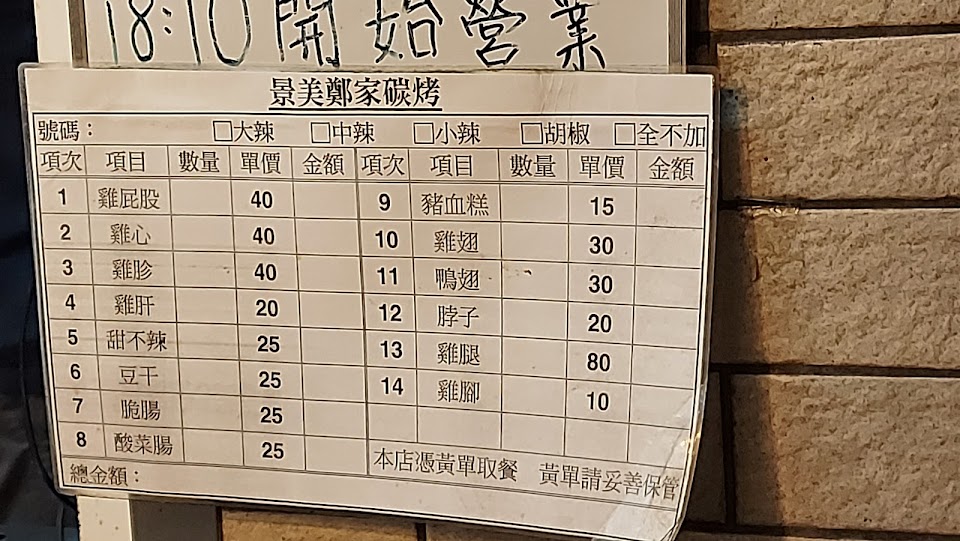 18:10開始營業
景美鄭家碳烤
號碼： □大辣 □中辣 □小辣 □胡椒 □全不加
項次 項目 數量 單價 金額 項次 項目 數量 單價 金額
1 雞屁股 40 9 豬血糕 15
2 雞心 40 10 雞翅 30
3 雞胗 40 11 鴨翅 30
4 雞肝 20 12 脖子 20
5 甜不辣 25 13 雞腿 80
6 豆干 25 14 雞腳 10
7 脆腸 25
8 酸菜腸 25
本店憑黃單取餐 黃單請妥善保管
總金額：